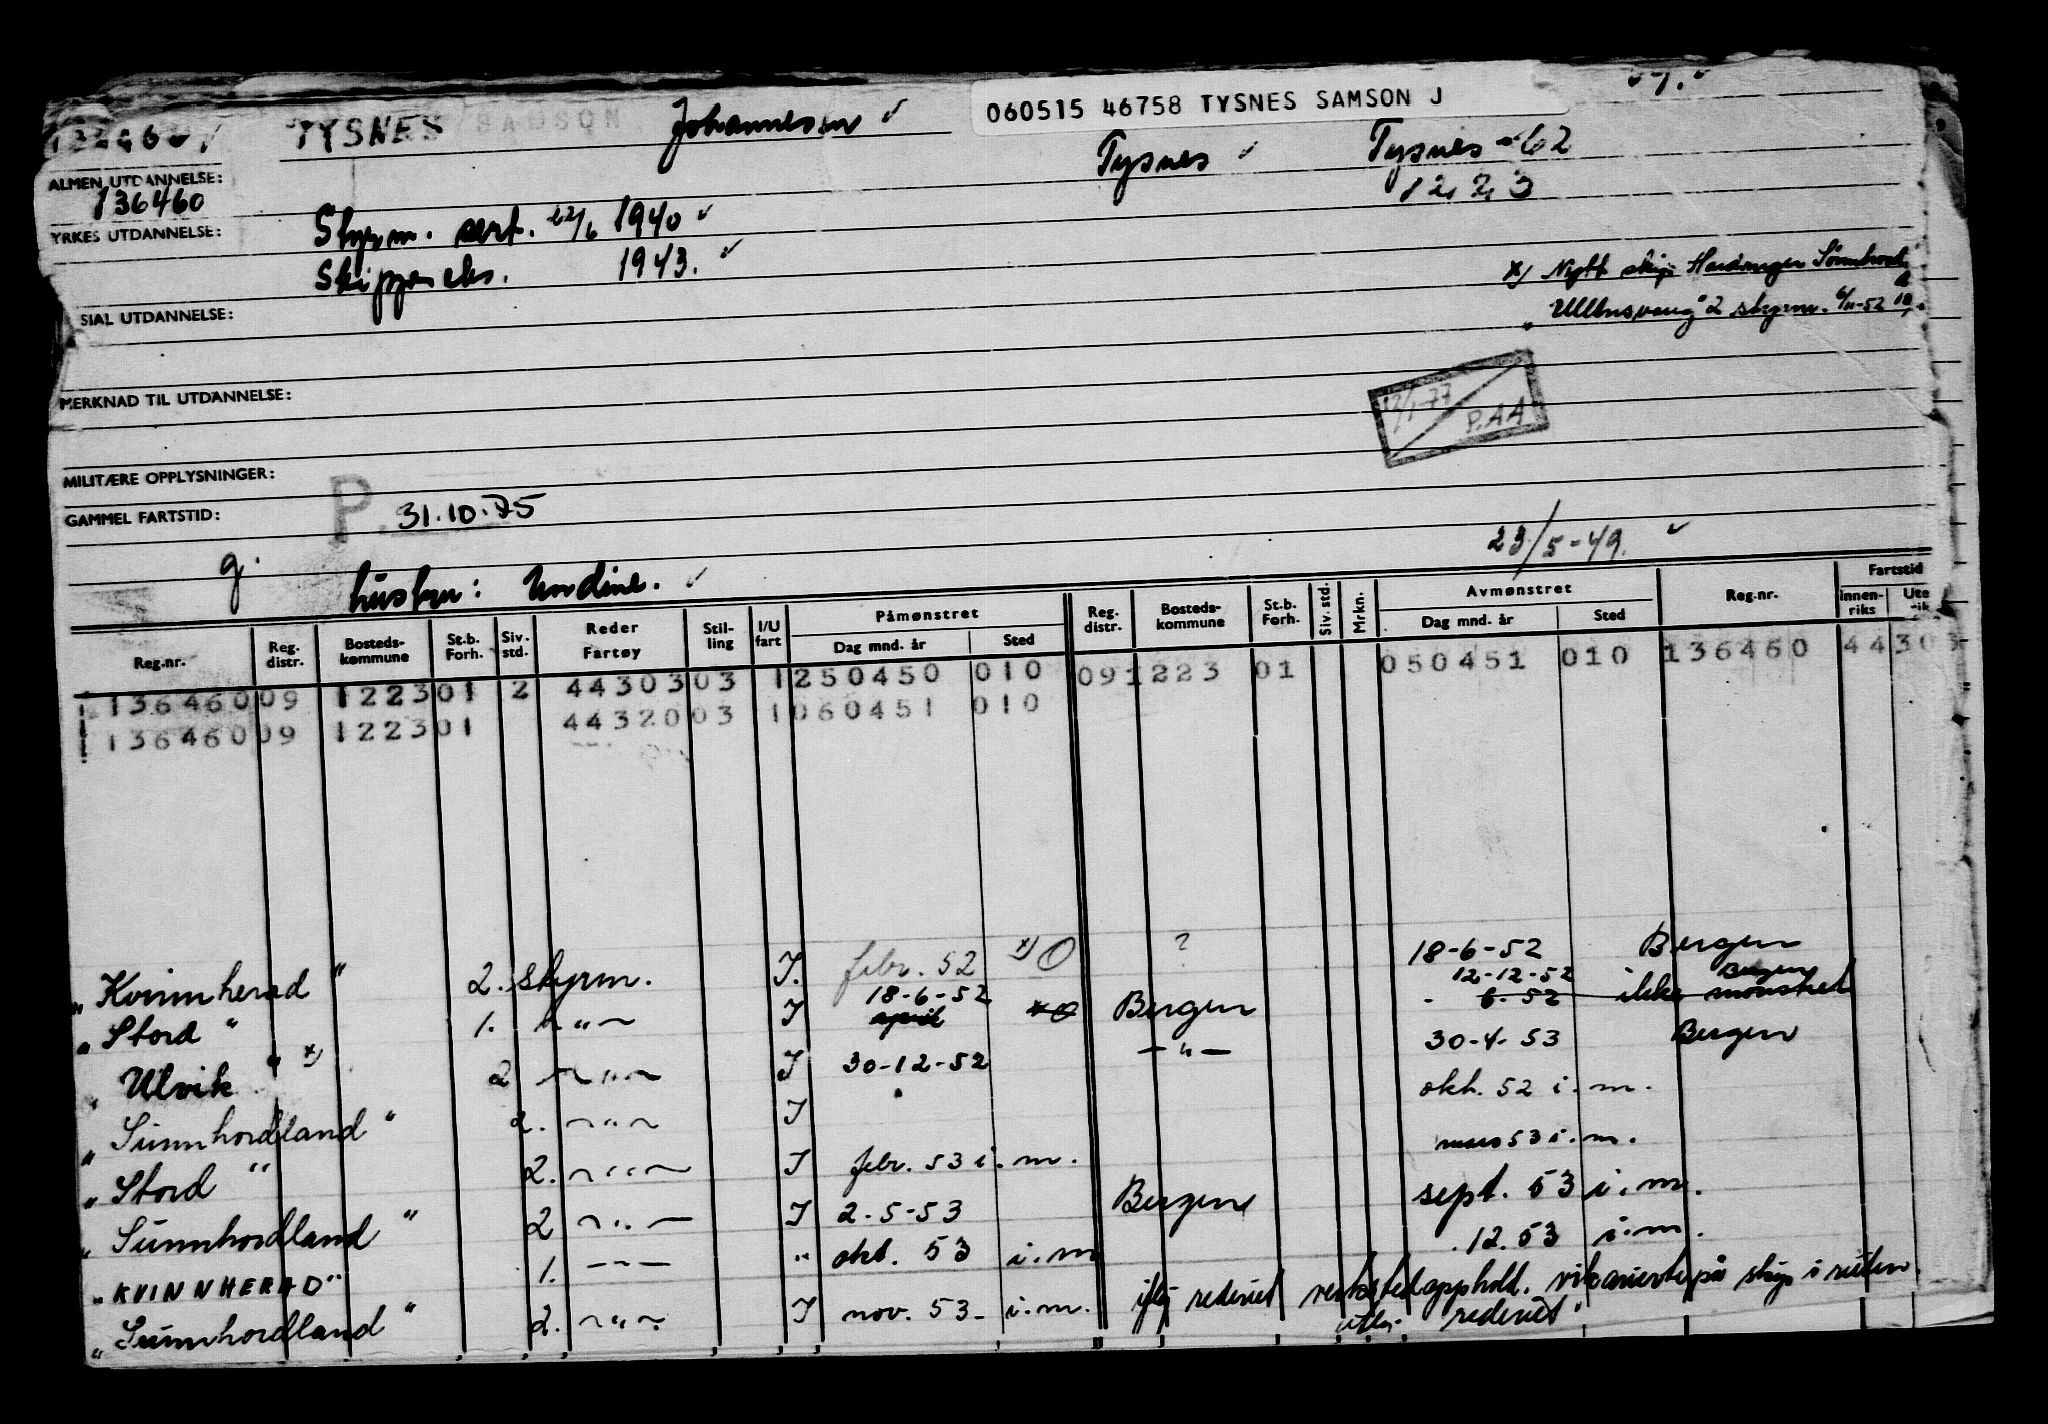 TYSNES SAMSON Johannesen ✓ 060515 46758 TYSNES SAMSON J
Tysnes ✓ Tysnes - 62
1223
ALMEN UTDANNELSE:
136460
YRKES UTDANNELSE: Styrm. sert. 12/6 1940 ✓
Skippereks. 1943. ✓
x) Nytt skip Hardanger Sunnhordl.
SIAL UTDANNELSE:
"Ullensvang" 2 styrm. 6/11-52
MERKNAD TIL UTDANNELSE:
12/1-77 P.AA.
MILITÆRE OPPLYSNINGER:
GAMMEL FARTSTID: P. 31.10.75
g. hustru: Undine. ✓ 23/5-49. ✓
Reg.nr. Reg. distr. Bosteds-kommune St.b. Forh. Siv. std. Reder Fartøy Stil-ling I/U fart Påmønstret Dag mnd. år Sted Reg. distr. Bosteds-kommune St.b. Forh. Siv. std. Mrkn. Avmønstret Dag mnd. år Sted Reg.nr. Fartstid Innen-riks Ute -rik
136460 09 1223 01 2 44303 03 1 250450 010 09 1223 01 050451 010 136460 44303
136460 09 1223 01 44320 03 1 060451 010
"Kvinnherad" 2. styrm. I. febr. 52 x) O ? 18-6-52 Bergen
"Stord" 1. ~"~ I 18-6-52 april Bergen 12-12-52 6-52 ikke mønstret Bergen
"Ulvik" x) 2 ~"~ I 30-12-52 -"- 30-4-53 Bergen
"Sunnhordland" 2. ~"~ I okt. 52 i.m.
"Stord" 2. ~"~ I febr. 53 i.m. mars 53 i.m.
"Sunnhordland" 2 ~"~ I 2-5-53 Bergen sept. 53 i.m.
"KVINNHERAD" 1. -"- " okt. 53 i.m. .12.53 i.m.
"Sunnhordland" 2. ~"~ I nov. 53 - i.m. iflg rederiet verkstedopphold. vikarierte på skip i ruten
rederiet"